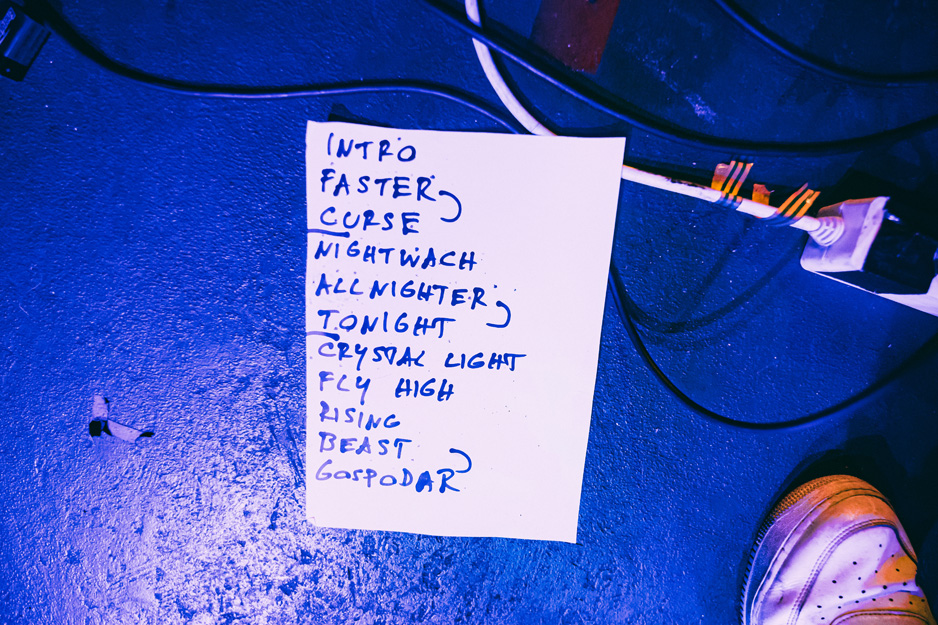 INTRO
FASTER
CURSE
NIGHTWACH
ALLNIGHTER
TONIGHT
CRYSTAL LIGHT
FLY HIGH
RISING
BEAST
GOSPODAR